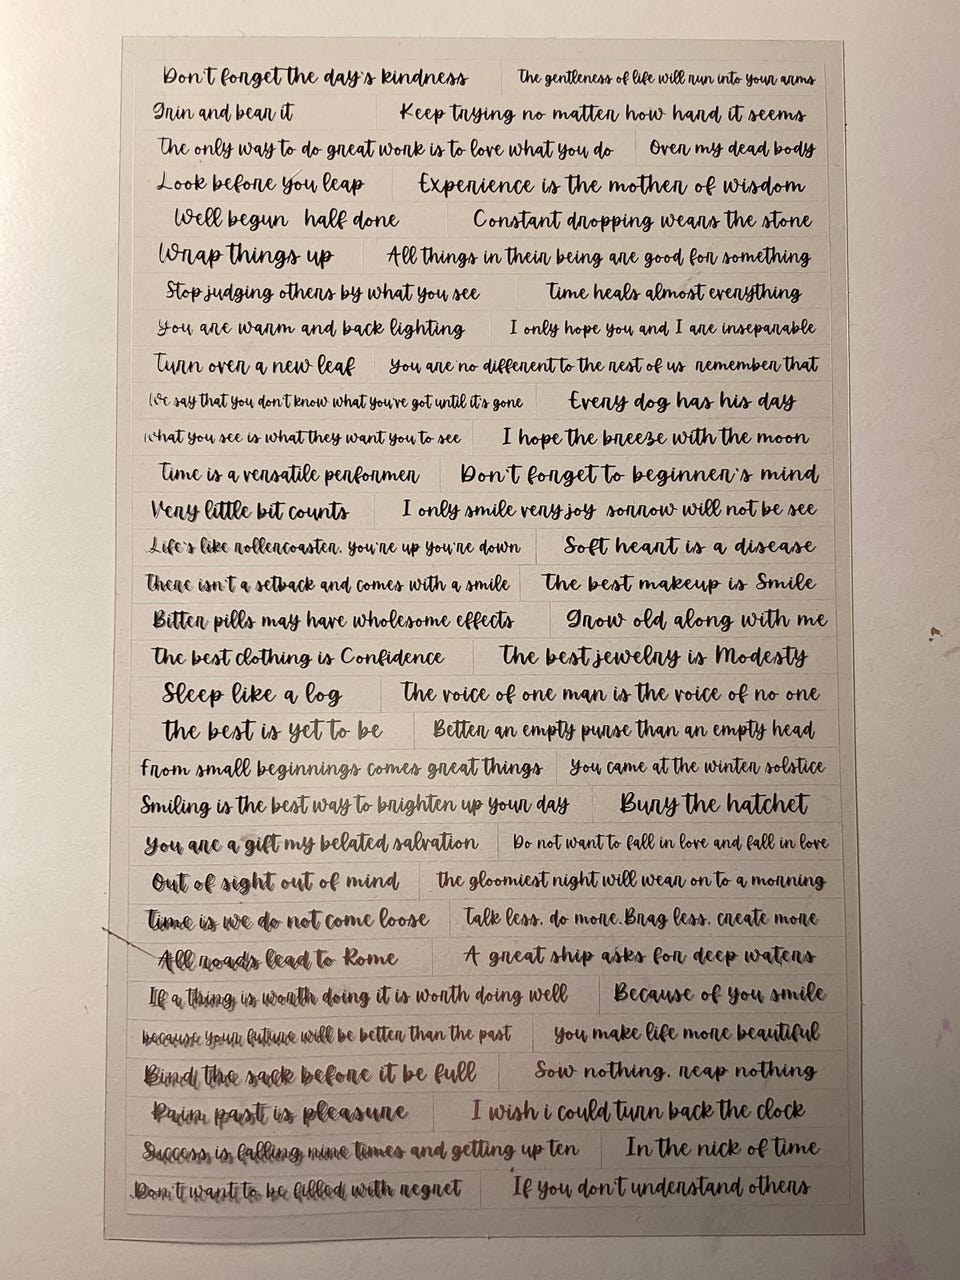 Don't forget the day's kindness The gentleness of life will run into your arms
Grin and bear it Keep trying no matter how hard it seems
The only way to do great work is to love what you do Over my dead body
Look before you leap Experience is the mother of wisdom
Well begun half done Constant dropping wears the stone
Wrap things up All things in their being are good for something
Stop judging others by what you see Time heals almost everything
You are warm and back lighting I only hope you and I are inseparable
Turn over a new leaf You are no different to the rest of us remember that
We say that you don't know what you've got until it's gone Every dog has his day
What you see is what they want you to see I hope the breeze with the moon
Time is a versatile performer Don't forget to beginner's mind
Very little bit counts I only smile very joy sorrow will not be see
Life's like rollercoaster. you're up you're down Soft heart is a disease
There isn't a setback and comes with a smile The best makeup is Smile
Bitter pills may have wholesome effects Grow old along with me
The best clothing is Confidence The best jewelry is Modesty
Sleep like a log The voice of one man is the voice of no one
The best is yet to be Better an empty purse than an empty head
From small beginnings comes great things You came at the winter solstice
Smiling is the best way to brighten up your day Bury the hatchet
You are a gift my belated salvation Do not want to fall in love and fall in love
Out of sight out of mind the gloomiest night will wear on to a morning
Time is we do not come loose Talk less. do more. Brag less. create more
All roads lead to Rome A great ship asks for deep waters
If a thing is worth doing it is worth doing well Because of you smile
because your future will be better than the past You make life more beautiful
Bind the sack before it be full Sow nothing. reap nothing
Pain past is pleasure I wish i could turn back the clock
Success is falling nine times and getting up ten In the nick of time
Don't want to be filled with regret If you don't understand others